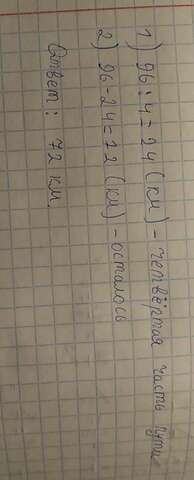 1) 96 : 4 = 24 (км) - четвёртая часть пути
2) 96 - 24 = 72 (км) - осталось
Ответ: 72 км